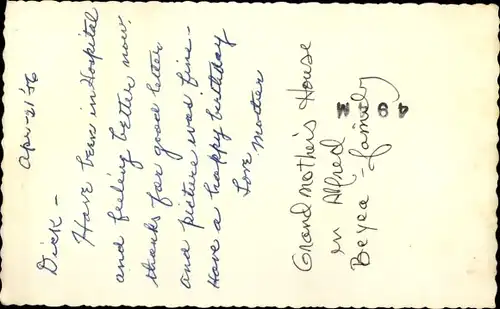 Apr-21'56
Dick-
Have been in Hospital
and feeling better now.
thanks for good letter
and picture was fine-
Have a happy birthday
Love, Mother
Grandmother's House
in Alfred
Beyea-family